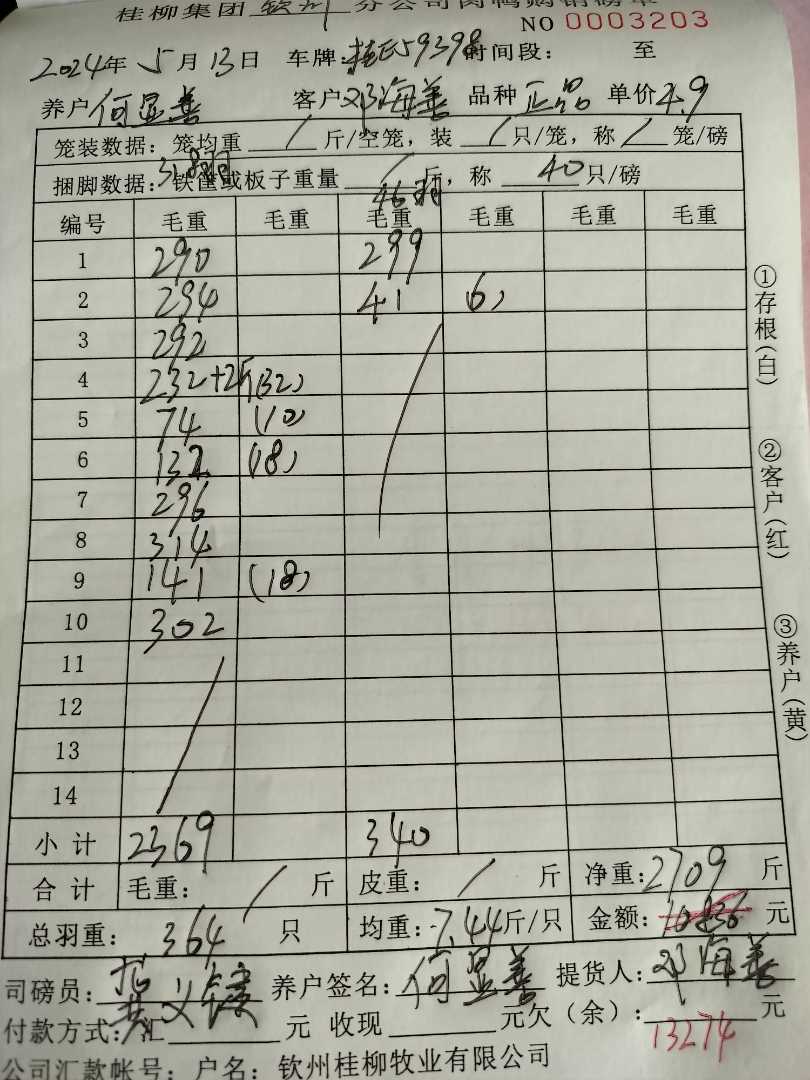 桂柳集团 钦州 分公司肉鸭购销磅单
NO 0003203
2024年 5月 13日 车牌:桂E59398 时间段: 至
养户 何显善 客户 邓海善 品种 正品 单价 4.9
笼装数据: 笼均重 / 斤/空笼, 装 / 只/笼, 称 / 笼/磅
捆脚数据: 318羽 铁筐或板子重量 / 斤, 称 40 只/磅
46羽
编号 毛重 毛重 毛重 毛重 毛重 毛重
1 290 299
2 294 41 (6)
3 292
4 232+2斤 (32)
5 74 (10)
6 132 (18)
7 296
8 314
9 141 (18)
10 302
11
12
13
14
小计 2369 340
合计 毛重: / 斤 皮重: / 斤 净重: 2709 斤
总羽重: 364 只 均重: 7.44 斤/只 金额: 元
司磅员: 养户签名: 何显善 提货人: 邓海善
付款方式: 汇 元 收现 元 欠(余): 元
13274
公司汇款帐号: 户名: 钦州桂柳牧业有限公司
①存根(白)
②客户(红)
③养户(黄)